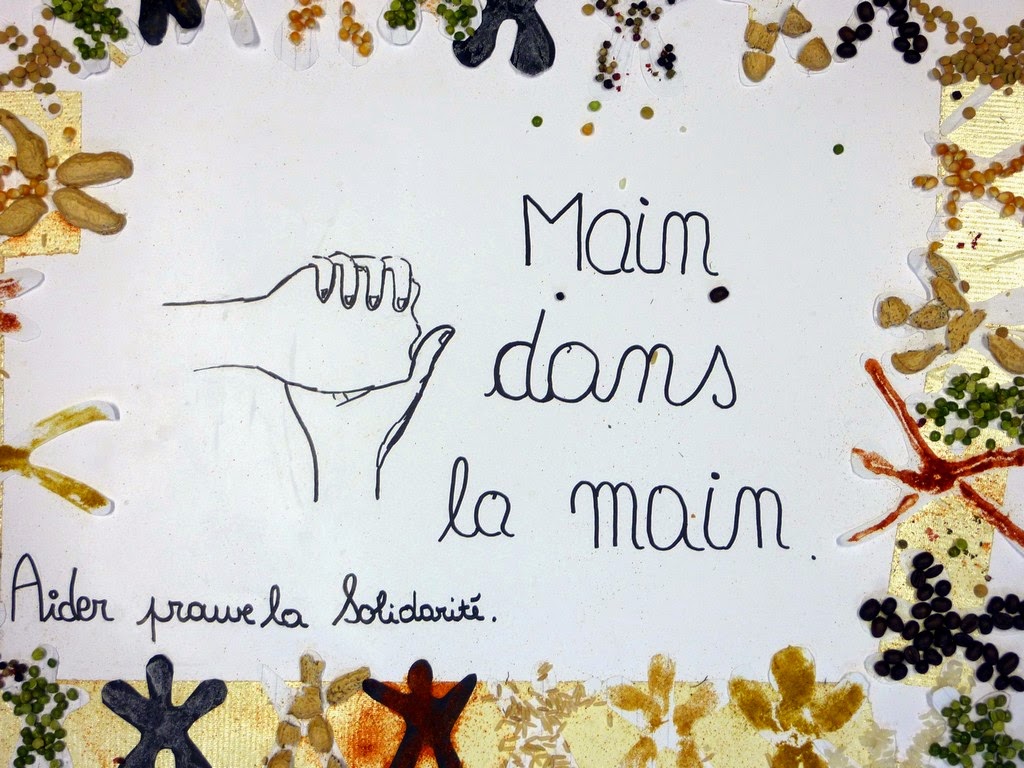 Main
dans
la main.
Aider prouve la Solidarité.